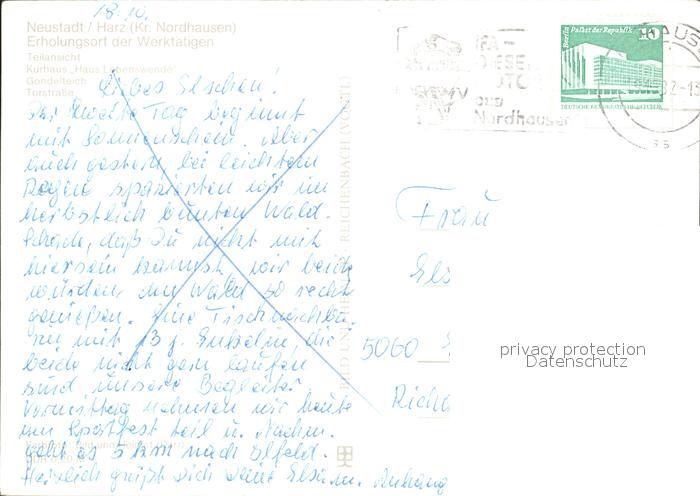 18.10.
Neustadt / Harz (Kr. Nordhausen)
Erholungsort der Werktätigen
Teilansicht
Kurhaus „Haus Lebenswende"
Gondelteich
Torstraße
Liebes Elschen!
Der zweite Tag beginnt
mit Sonnenschein. Aber
auch gestern bei leichtem
Regen spazierten wir im
herbstlich bunten Wald.
Schade, daß Du nicht mit
hiersein kannst, wir beide
würden den Wald so recht
genießen. Eine Tischnachba-
rin mit 13 j. Enkelin, die
beide nicht gern laufen
sind unsere Begleiter.
Vormittag nehmen wir heute
am Sportfest teil u. Nachm.
geht es nach Ilfeld.
Herzlich grüßt Dich Deine Elsa m. Anhang
BILD UND HEIMAT REICHENBACH (VOGTL)
IFA-
DIESEL
MOTOREN
aus
Nordhausen
Berlin Palast der Republik
10
Frau
Els
5060
Richa
privacy protection
Datenschutz